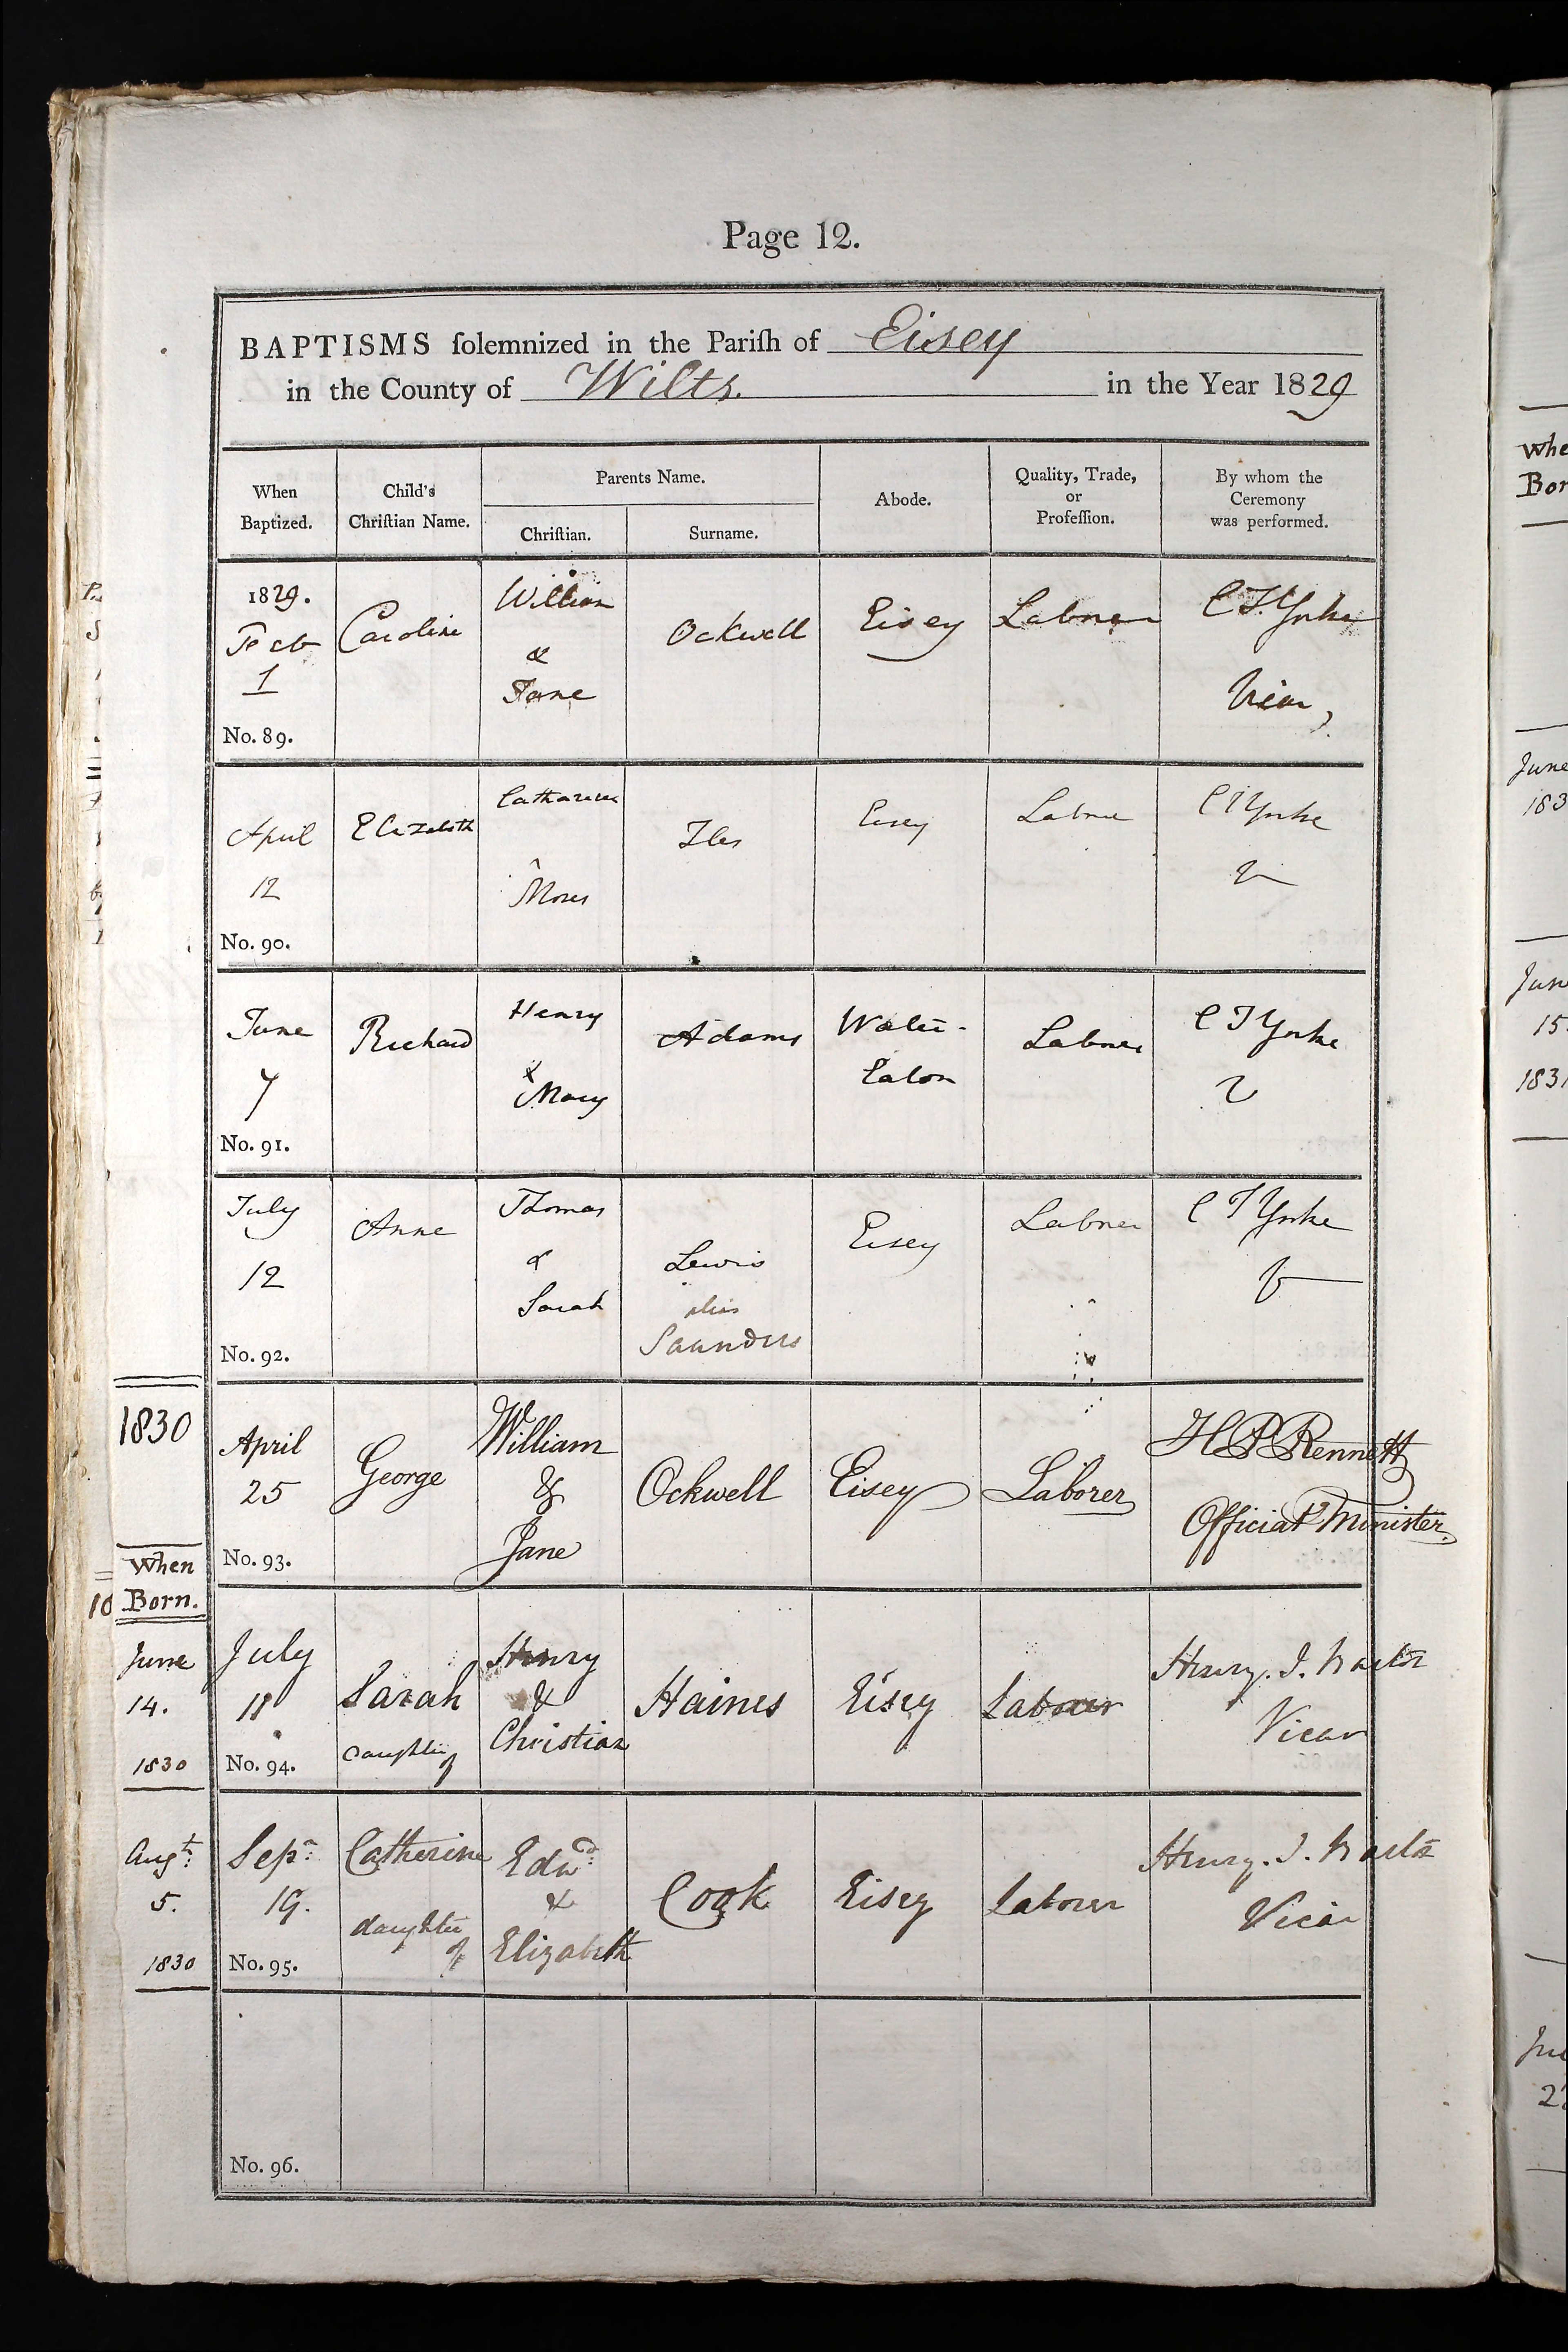 Page 12.
BAPTISMS ſolemnized in the Pariſh of Eisey
in the County of Wilts. in the Year 1829
When Baptized.
Child's Chriſtian Name.
Parents Name.
Chriſtian.
Surname.
Abode.
Quality, Trade, or Profeſſion.
By whom the Ceremony was performed.
1829.
Feb
1
No. 89.
Caroline
William
&
Jane
Ockwell
Eisey
Labourer
C T Yorke
Vicar
April
12
No. 90.
Elizabeth
Catharine
Moses
Iles
Eisey
Labourer
C T Yorke
V
June
7
No. 91.
Richard
Henry
&
Mary
Adams
Water-
Eaton
Labourer
C T Yorke
V
July
12
No. 92.
Anne
Thomas
&
Sarah
Lewis
alias
Saunders
Eisey
Labourer
C T Yorke
V
1830
April
25
No. 93.
George
William
&
Jane
Ockwell
Eisey
Laborer
H P Rennett
Official Minister.
When
Born.
June
14.
1830
July
18
No. 94.
Sarah
daughter
of
Henry
&
Christian
Haines
Eisey
Labourer
Henry. J.
Vicar
Augt.
5.
1830
Sepr.
19.
No. 95.
Catherine
daughter
of
Edwd.
&
Elizabeth
Cook
Eisey
Laborer
Henry. J.
Vicar
No. 96.